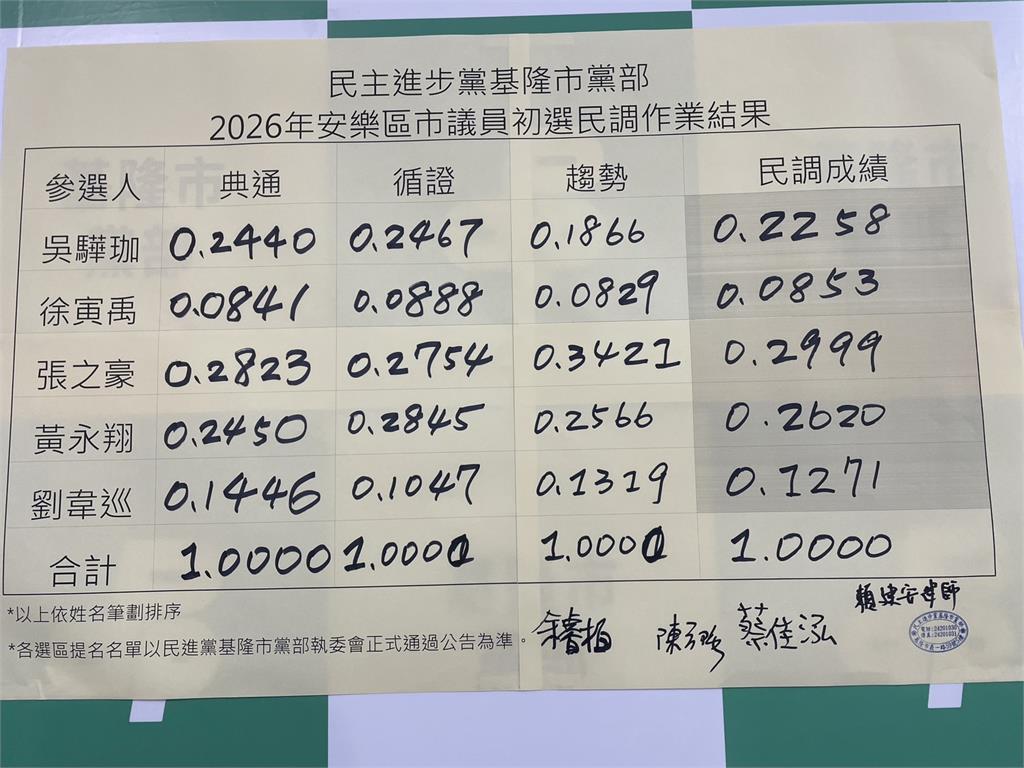 民主進步黨基隆市黨部
2026年安樂區市議員初選民調作業結果
參選人 典通 循證 趨勢 民調成績
吳驊珈 0.2440 0.2467 0.1866 0.2258
徐寅禹 0.0841 0.0888 0.0829 0.0853
張之豪 0.2823 0.2754 0.3421 0.2999
黃永翔 0.2450 0.2845 0.2566 0.2620
劉韋巡 0.1446 0.1047 0.1319 0.1271
合計 1.0000 1.0001 1.0001 1.0000
*以上依姓名筆劃排序
*各選區提名名單以民進黨基隆市黨部執委會正式通過公告為準。
蔡佳泓
律師